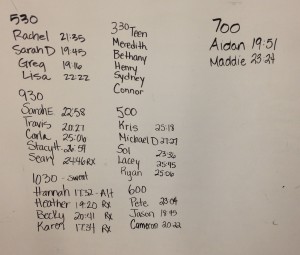 530
Rachel 21:35
Sarah D 19:45
Greg 19:16
Lisa 22:22
930
Sarah E 22:58
Travis 20:27
Carla 25:06
Stacy H. 26:57
Sean 24:46 RX
1030 - Sweat
Hannah 17:52 - Alt
Heather 19:20 RX
Becky 20:41 RX
Karen 17:34 RX
330 Teen
Meredith
Bethany
Henry
Sydney
Connor
500
Kris 25:18
Michael D 27:27
Sol 23:36
Lacey 25:45
Ryan 25:06
600
Pete 23:04
Jason 18:45
Cameron 20:22
700
Aidan 19:51
Maddie 23:24